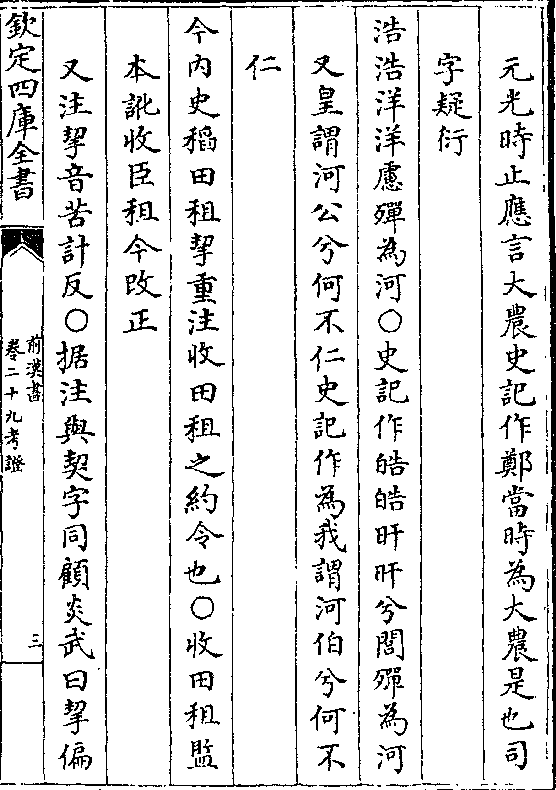 元光時止應言大農史記作鄭當時為大農是也司
字疑衍
浩浩洋洋慮殫為河○史記作皓皓旰旰兮閭殫為河
又皇謂河公兮何不仁史記作為我謂河伯兮何不
仁
今內史稻田租挈重注收田租之約令也○收田租監
本訛收臣租今改正
又注挈音苦計反○据注與契字同顧炎武曰挈偏
欽定四庫全書
前漢書
卷二十九考證
三